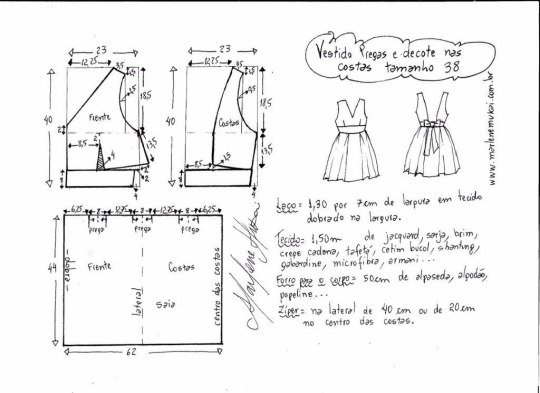 Vestido Pregas e decote nas
costas tamanho 38
23
12,25
3,5
1,5
40
Frente
1,5
18,5
2
8,5
2
4
13,5
2
4
4
23
12,25
3,5
1,5
40
Costas
1,5
18,5
8,5
1,5
13,5
4
4
www.marlenemukai.com.br
6,25
8
12,25
8
12,25
8
6,25
prega
prega
prega
44
Frente
Costas
lateral
saia
centro das costas
62
Marlene Mukai
Laço = 1,30 por 7cm de largura em tecido
dobrado na largura.
Tecido = 1,50m de jacquard, sarja, brim,
crepe cadona, tafetá, cetim bucol, shantung,
gabardine, microfibra, armani...
Forro para o corpo = 50cm de alpaseda, algodão,
popeline...
Zíper = na lateral de 40 cm ou de 20cm
no centro das costas.